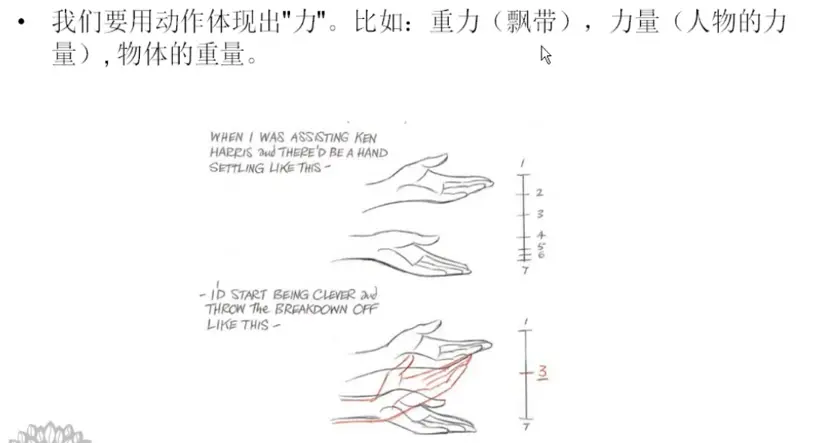 • 我们要用动作体现出"力"。比如：重力（飘带），力量（人物的力
量）,物体的重量。
WHEN I WAS ASSISTING KEN
HARRIS and THERE'D BE A HAND
SETTLING LIKE THIS –
1
2
3
4
5
6
7
– I'D START BEING CLEVER and
THROW the BREAKDOWN OFF
LIKE THIS –
1
3
7